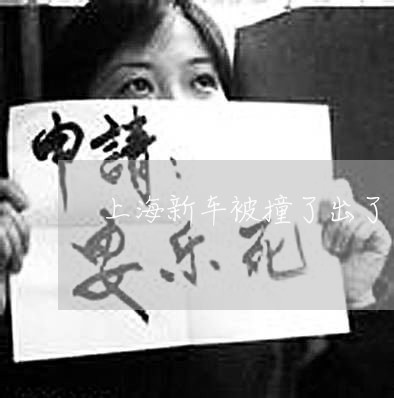 申請：
上海新车被撞了出了
安乐死